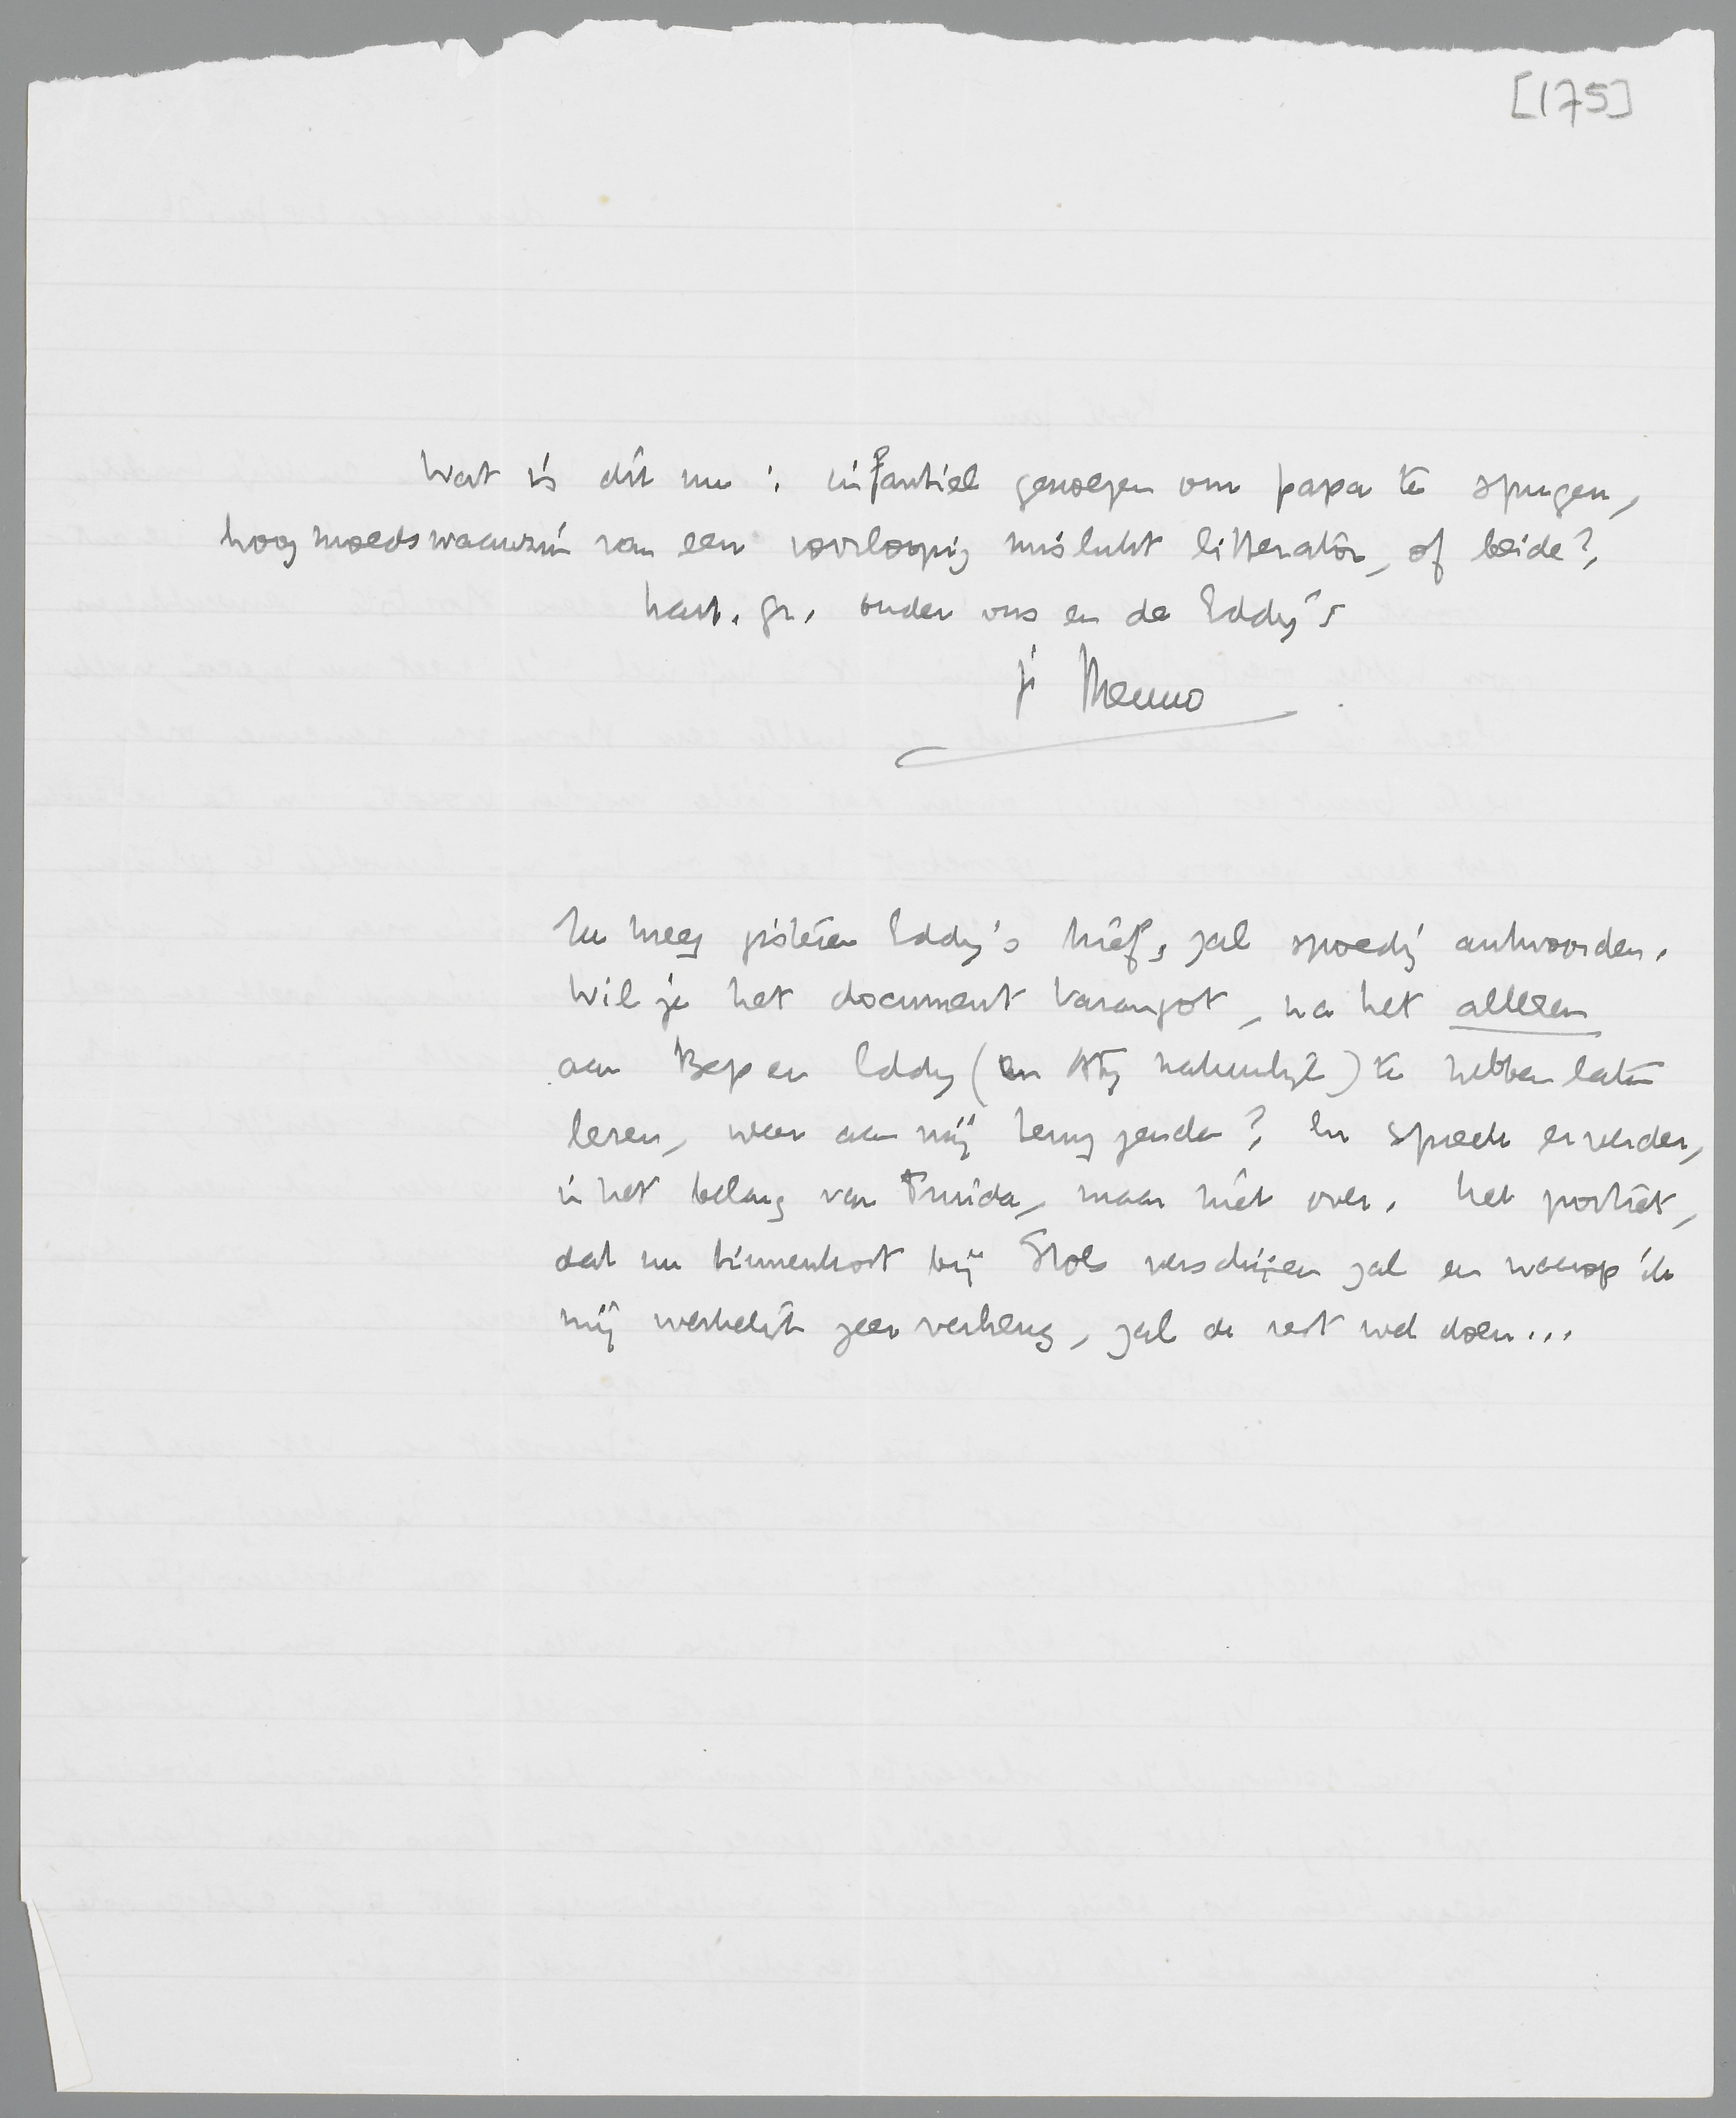 [175]
Wat is dit nu: infantiel genoegen om papa te spugen,
hoogmoedswaanzin van een voorloopig mislukt litterator, of beide?
hart. gr. onder ons en de Eddy's
je Menno
Ik kreeg gisteren Eddy's brief, zal spoedig antwoorden.
Wil je het document Varangot, na het alleen
aan Bep en Eddy (en Aty natuurlijk) te hebben laten
lezen, weer aan mij terug zenden? En spreek er verder,
in het belang van Truida, maar niet over. Het portret,
dat nu binnenkort bij Stols verschijnen zal en waarop ik
mij werkelijk zeer verheug, zal de rest wel doen...